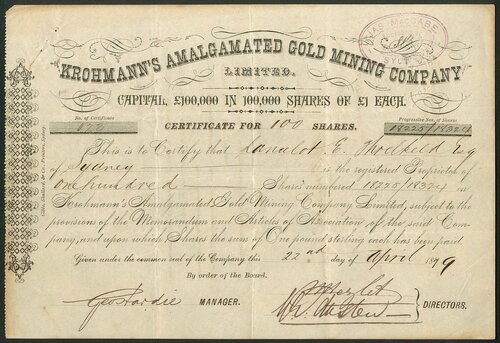 JAS. MACCABE
KROHMANN'S AMALGAMATED GOLD MINING COMPANY
LIMITED.
CAPITAL, £100,000 IN 100,000 SHARES OF £1 EACH.
No. of Certificate
Progressive Nos. of Shares
18225/18324
CERTIFICATE FOR 100 SHARES.
This is to Certify that Lancelot E. Threlkeld Esq
of Sydney is the registered Proprietor of
one hundred Shares numbered 18225/18324 in
Krohmann's Amalgamated Gold Mining Company Limited, subject to the
provisions of the Memorandum and Articles of Association of the said Com-
pany, and upon which Shares the sum of One pound sterling each has been paid.
Given under the common seal of the Company this 22nd day of April 1879
By order of the Board.
Geo Hardie MANAGER.
DIRECTORS.
Gibbs, Shallard, & Co., Printers, Sydney